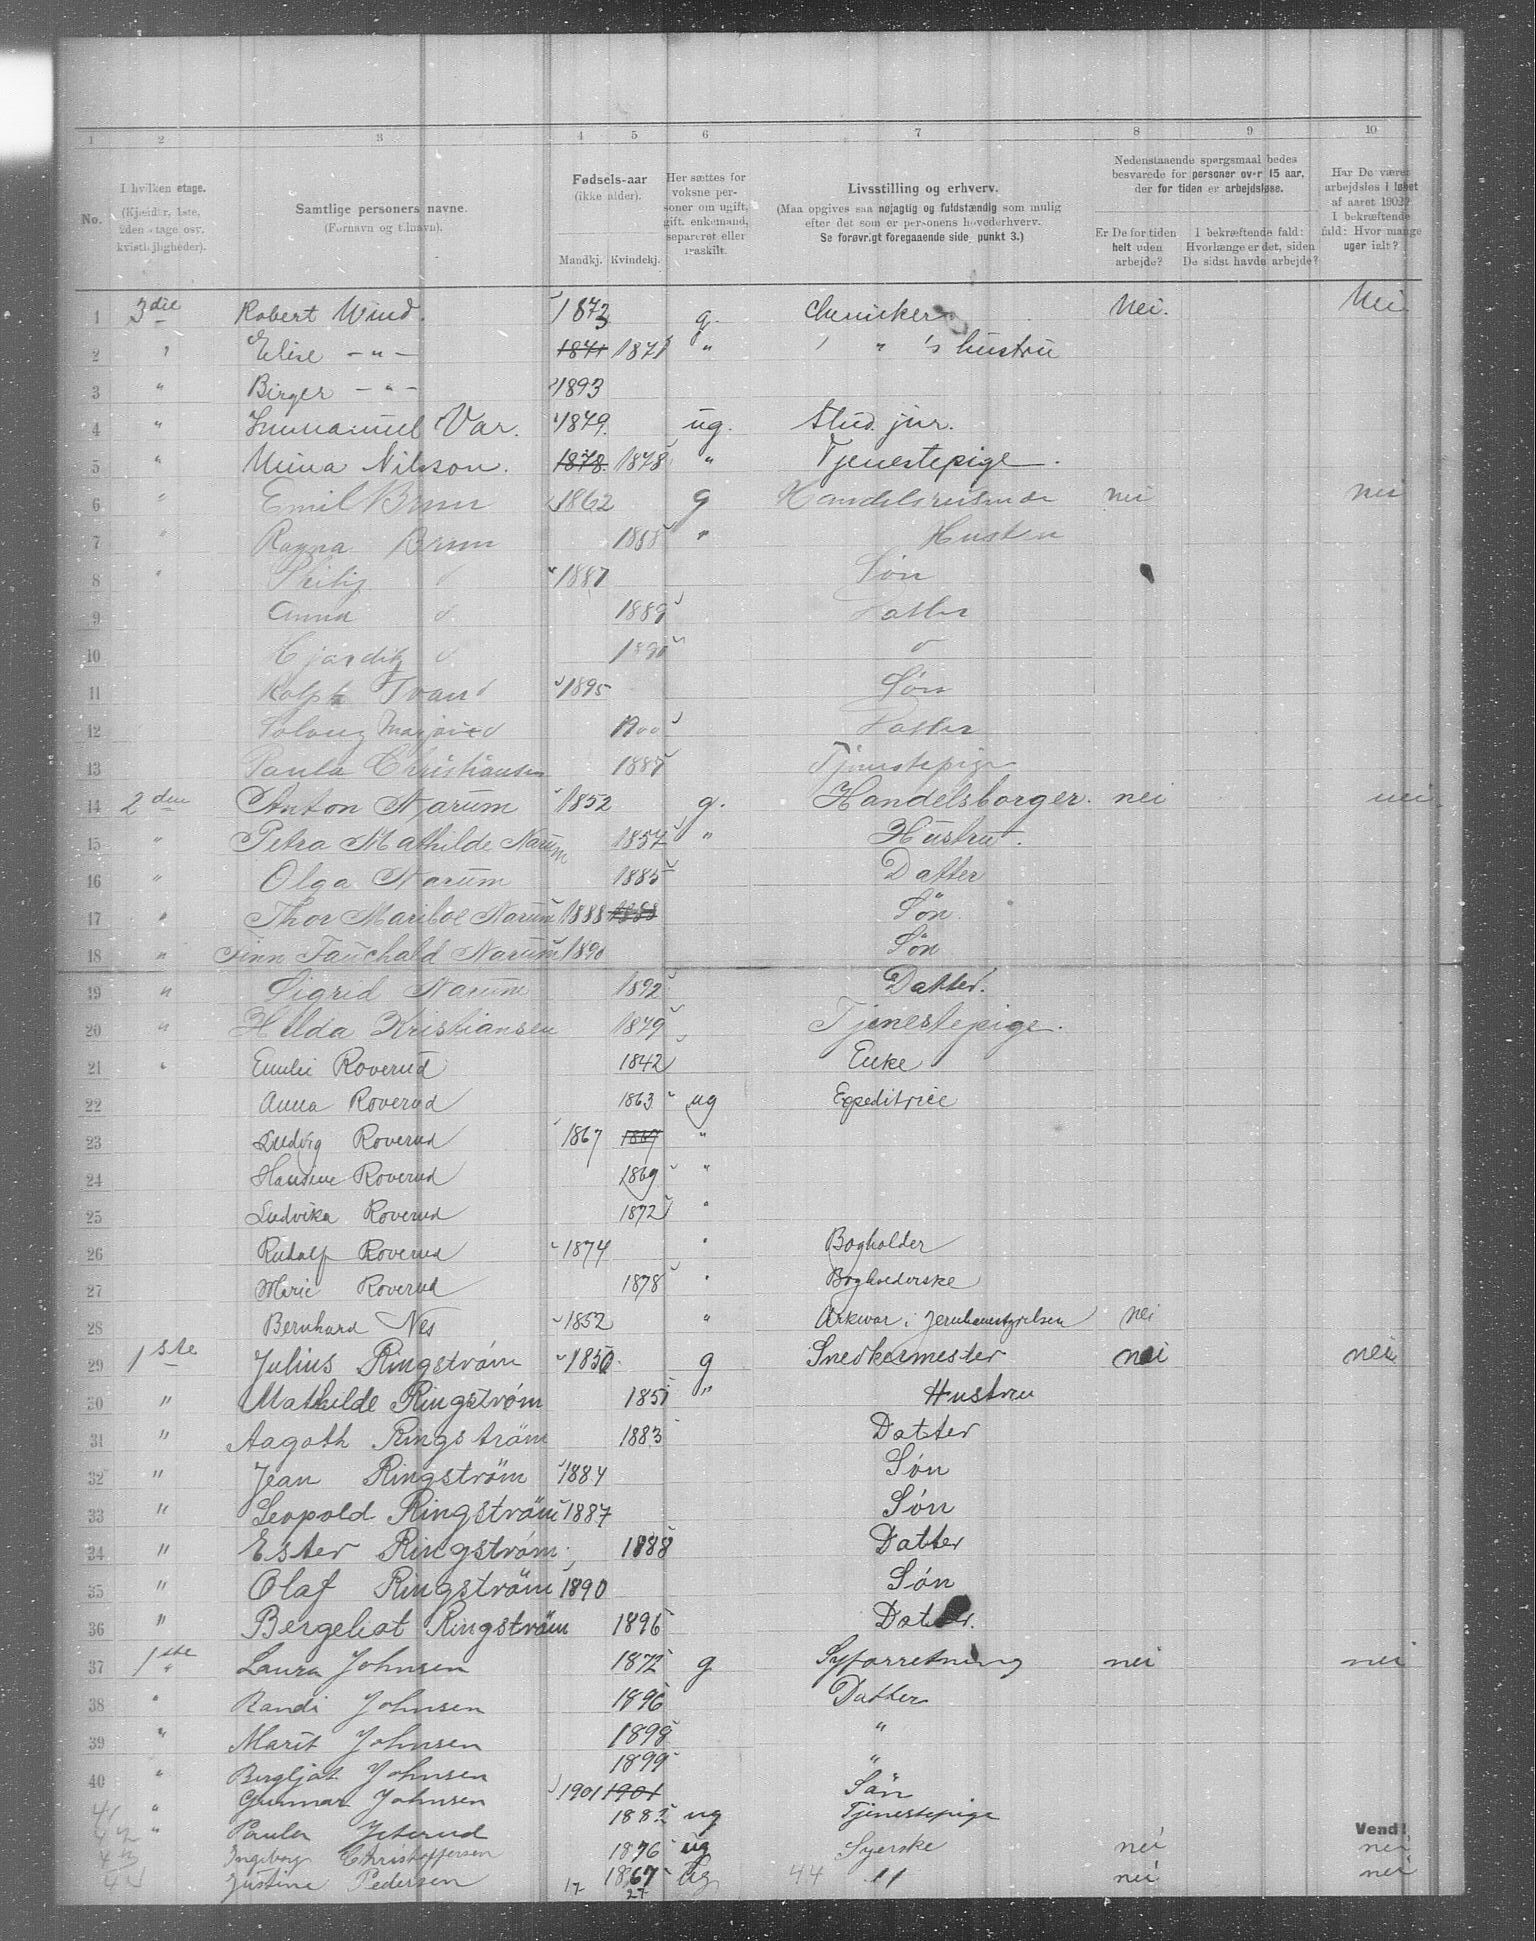 1 2 3 4 5 6 7 8 9 10
No.
I hvilken etage.
(Kjælder, 1ste,
2den etage osv.
kvistleiligheder).
Samtlige personers navne.
(Fornavn og tilnavn).
Fødsels-aar
(ikke alder).
Mandkj. Kvindekj.
Her sættes for
voksne per-
soner om ugift,
gift, enkemand,
separeret eller
fraskilt.
Livsstilling og erhverv.
(Maa opgives saa nøjagtig og fuldstændig som mulig
efter det som er personens hovederhverv.
Se forøvrigt foregaaende side, punkt 3.)
Nedenstaaende spørgsmaal bedes
besvarede for personer over 15 aar,
der for tiden er arbejdsløse.
Er De for tiden
helt uden
arbejde?
I bekræftende fald:
Hvorlænge er det, siden
De sidst havde arbejde?
Har De været
arbejdsløs i løbet
af aaret 1902?
I bekræftende
fald: Hvor mange
uger ialt?
1 3die Robert Wind. 1873 g. Chemiker Nei. Nei.
2 " Elise — " — 1841 1871 " " 's hustru
3 " Birger — " — 1893
4 " Immanuel Var. 1879. ug. Stud. jur.
5 " Mina Nilsson. 1878. 1878 " Tjenestepige.
6 " Emil Brun 1862 g Handelsreisende nei nei
7 " Ragna Brun 1858 " Hustru
8 " 1887 Søn
9 Anna d 1889 Datter
10 d 1890 d
11 Ralph 1895 Søn
12 1900 Datter
13 Paula Christiansen 1885 Tjenestepige
14 2den Anton Narum 1852 g. Handelsborger. nei nei.
15 " Petra Mathilde Narum 1857 " Hustru.
16 " Olga Narum 1885 Datter
17 " Thor Mariboe Narum 1888 1888 Søn
18 " Finn Fauchald Narum 1890 Søn
19 " Sigrid Narum 1892 Datter.
20 " Hilda Kristiansen 1879 Tjenestepige.
21 " Emilie Roverud 1842 Enke
22 Anna Roverud 1863 ug Expeditrice
23 Ludvig Roverud 1867 1867 "
24 Hansine Roverud 1869 "
25 Ludvika Roverud 1872 "
26 Rudolf Roverud 1874 " Bogholder
27 Marie Roverud 1878 " Bogholderske
28 Bernhard Nes 1852 " Arkivar i Jernbanestyrelsen nei
29 1ste Julius Ringström 1850. g Snedkermester nei nei
30 " Mathilde Ringström 1851 " Hustru
31 " Aagoth Ringström 1883 Datter
32 " Jean Ringström 1884 Søn
33 " Leopold Ringström 1887 Søn
34 " Ester Ringström. 1888 Datter
35 " Olaf Ringström 1890 Søn
36 " Bergeliot Ringström 1896 Datter.
37 1ste " Laura Johnsen 1872 g Syforretning nei nei
38 " Randi Johnsen 1896 Datter
39 " Marit Johnsen 1898 "
40 " Bergljot Johnsen 1899 "
41 " Gunnar Johnsen 1901 1901 Søn
42 " Paula 1882 ug Tjenestepige
Vend!
43 Ingeborg Christoffersen 1876 ug Syerske nei nei
44 Justine Pedersen 1867 ug 44 " nei nei
17 27